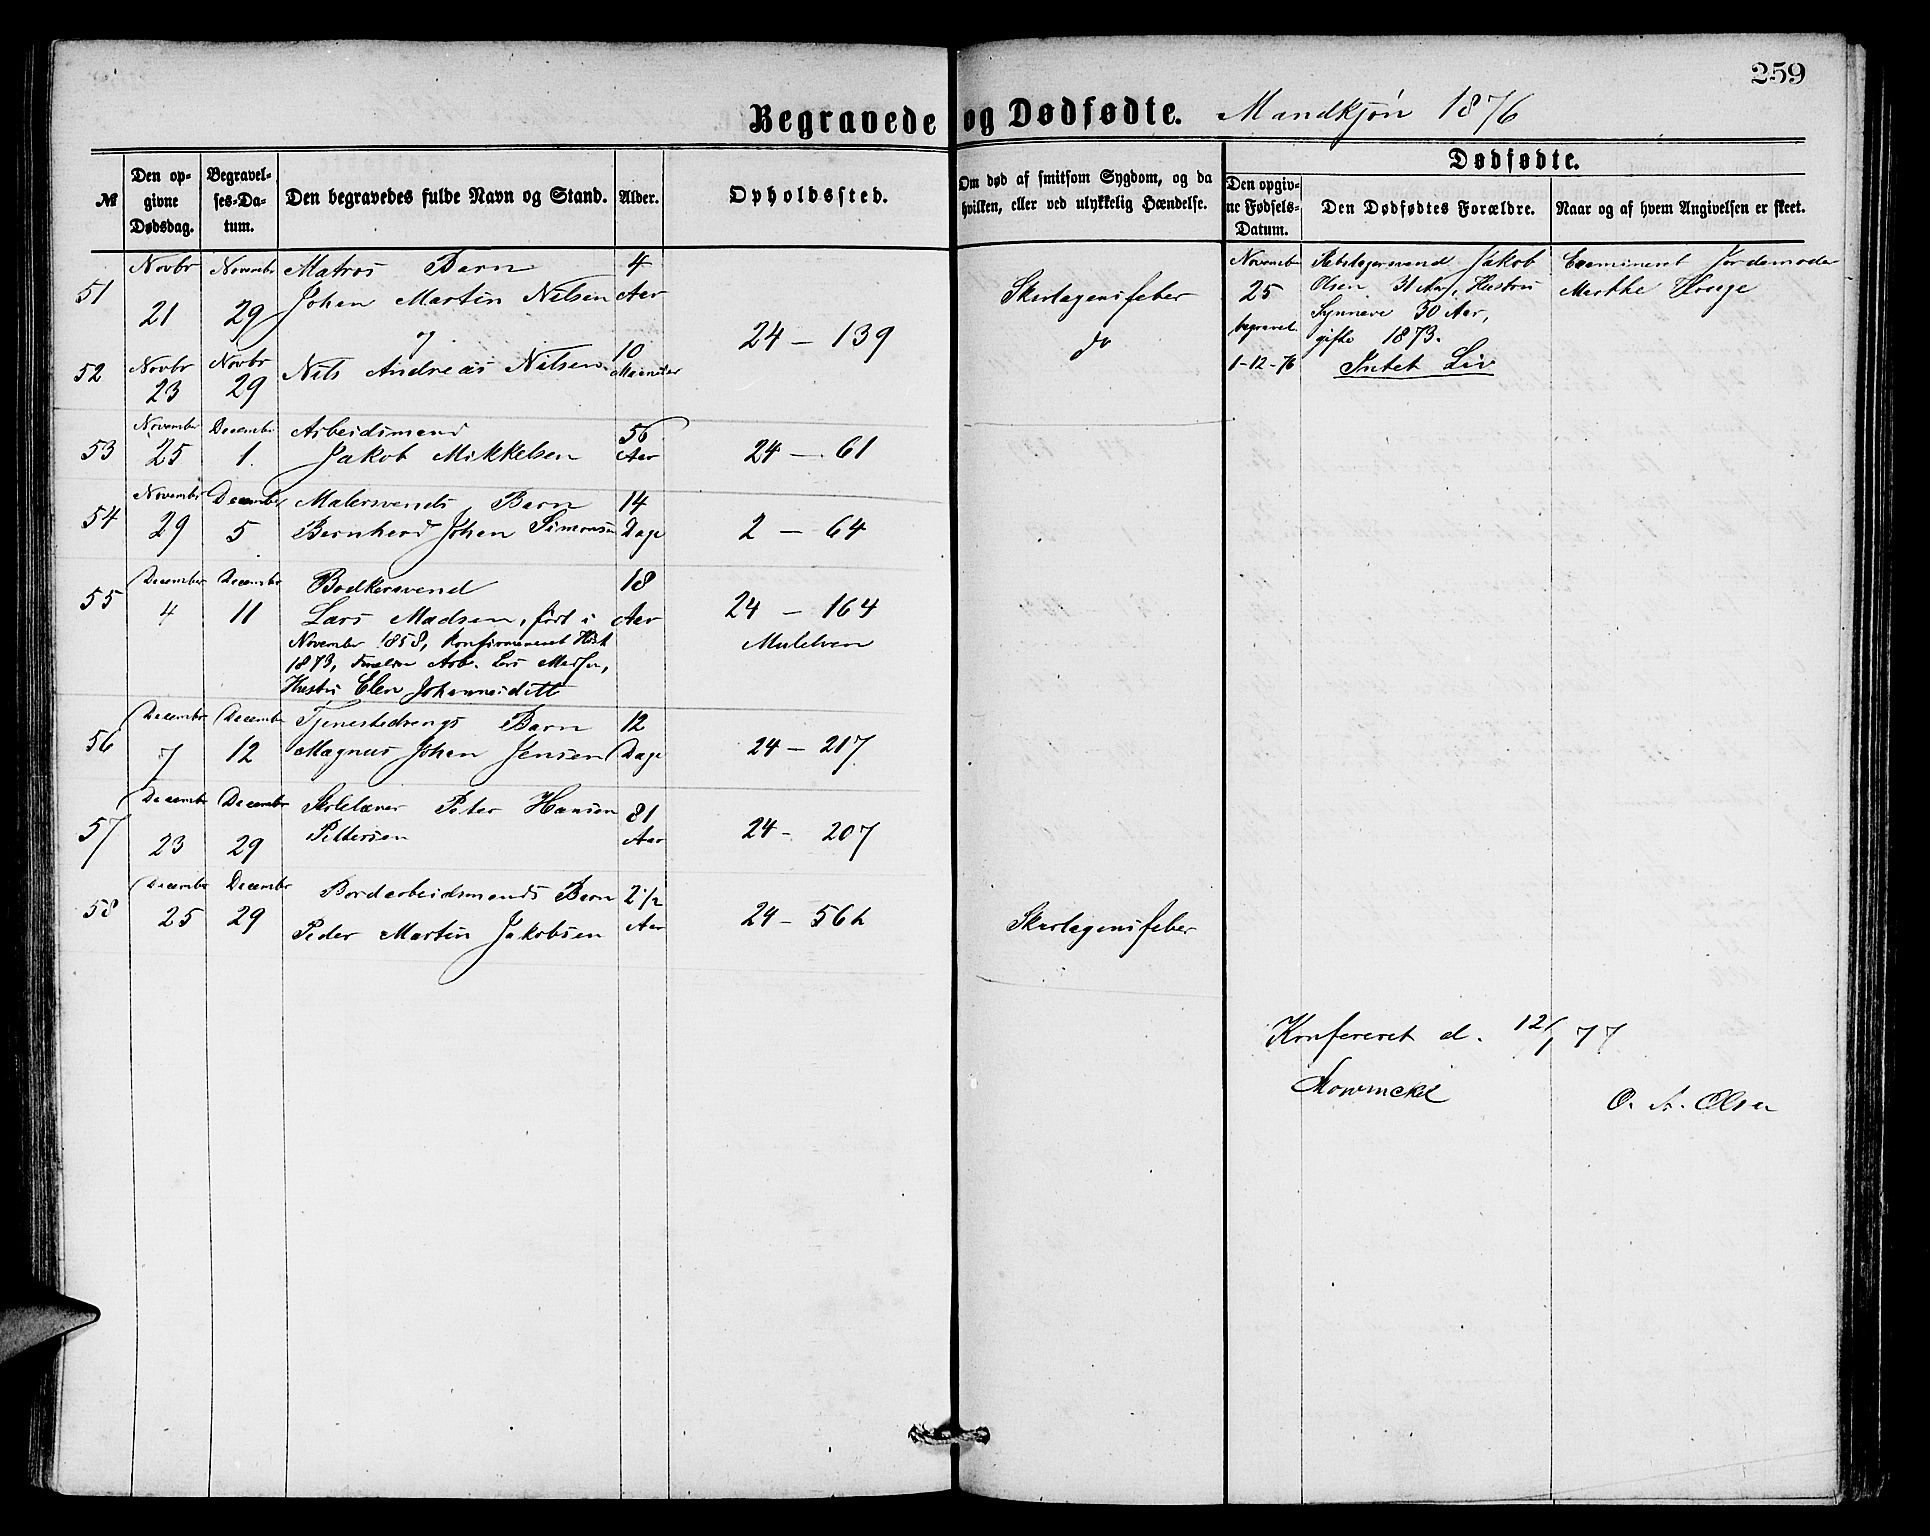 259
Begravede og Dødfødte. Mandkjøn 1876
№
Den op-
givne
Dødsdag.
Begravel-
ses-Da-
tum.
Den begravedes fulde Navn og Stand.
Alder.
Opholdssted.
Om død af smitsom Sygdom, og da
hvilken, eller ved ulykkelig Hændelse.
Dødfødte.
Den opgiv-
ne Fødsels-
Datum.
Den Dødfødtes Forældre.
Naar og af hvem Angivelsen er skeet.
51
Novbr
21
Novembr
29
Matros Barn
Johan Martin Nilsen
og
4
Aar
24 - 139
Skarlagensfeber
do
52
Novbr
23
Novbr
29
Nils Andreas Nilsen
10
Maaneder
Novembr
25
begravet
1-12-76
Rebslagersvend Jakob
Olsen 31 Aar, Hustru
Synneve 30 Aar,
gifte 1873.
Intet Liv
Examineret Jordemoder
Marthe Hauge
53
November
25
Decembr
1.
Arbeidsmand
Jakob Mikkelsen
56
Aar
24 - 61
54
Novembr
29
December
5
Malersvends Barn
Bernhard Johan Simonsen
14
Dage
2 - 64
55
December
4
Decembr
11
Bødkersvend
Lars Madsen, født i
November 1858, konfirmeret Høst
1873, Forældre Arb. Lars Madsen,
Hustru Elen Johannesdatter
18
Aar
24 - 164
56
December
7
Decembr
12
Tjenestedrengs Barn
Magnus Johan Jensen
12
Dage
24 - 217
57
December
23
December
29
Peter Hansen
Pettersen
81
Aar
24 - 207
58
Decembr
25
Decembr
29
Bordarbeidsmands Barn
Peder Martin Jakobsen
2 1/2
Aar
24 - 56b
Skarlagensfeber
Konfereret d. 12/1 77
Mowinckel
O. A. Olsen